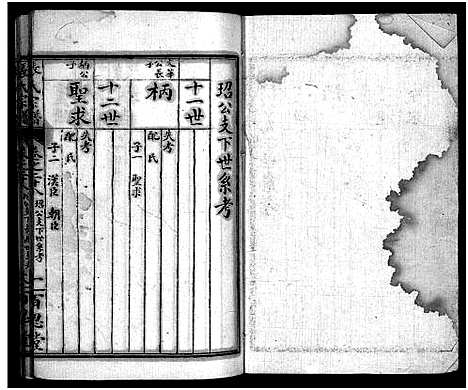 玿公支下世系考
十一世
文華公長子
柄
失考
配氏
子一 聖求
十二世
柄公子
聖求
失考
配氏
子二 漢臣 朝臣
玿公支下世系考
一